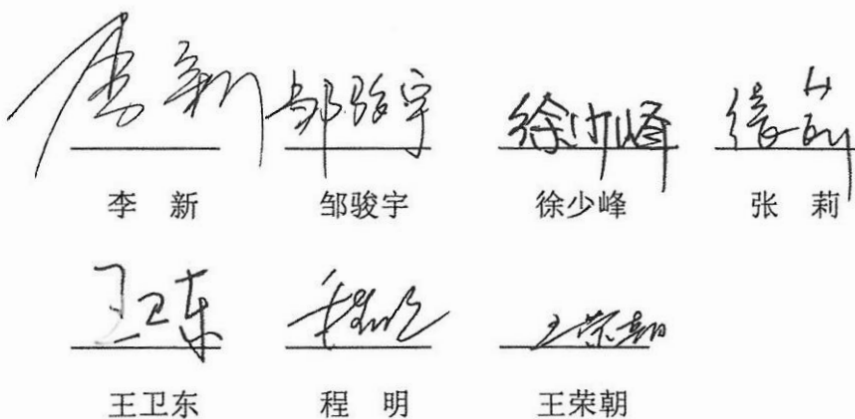 邹骏宇 徐少峰
李 新 邹骏宇 徐少峰 张 莉
王卫东 程明 王荣朝
王卫东 程 明 王荣朝